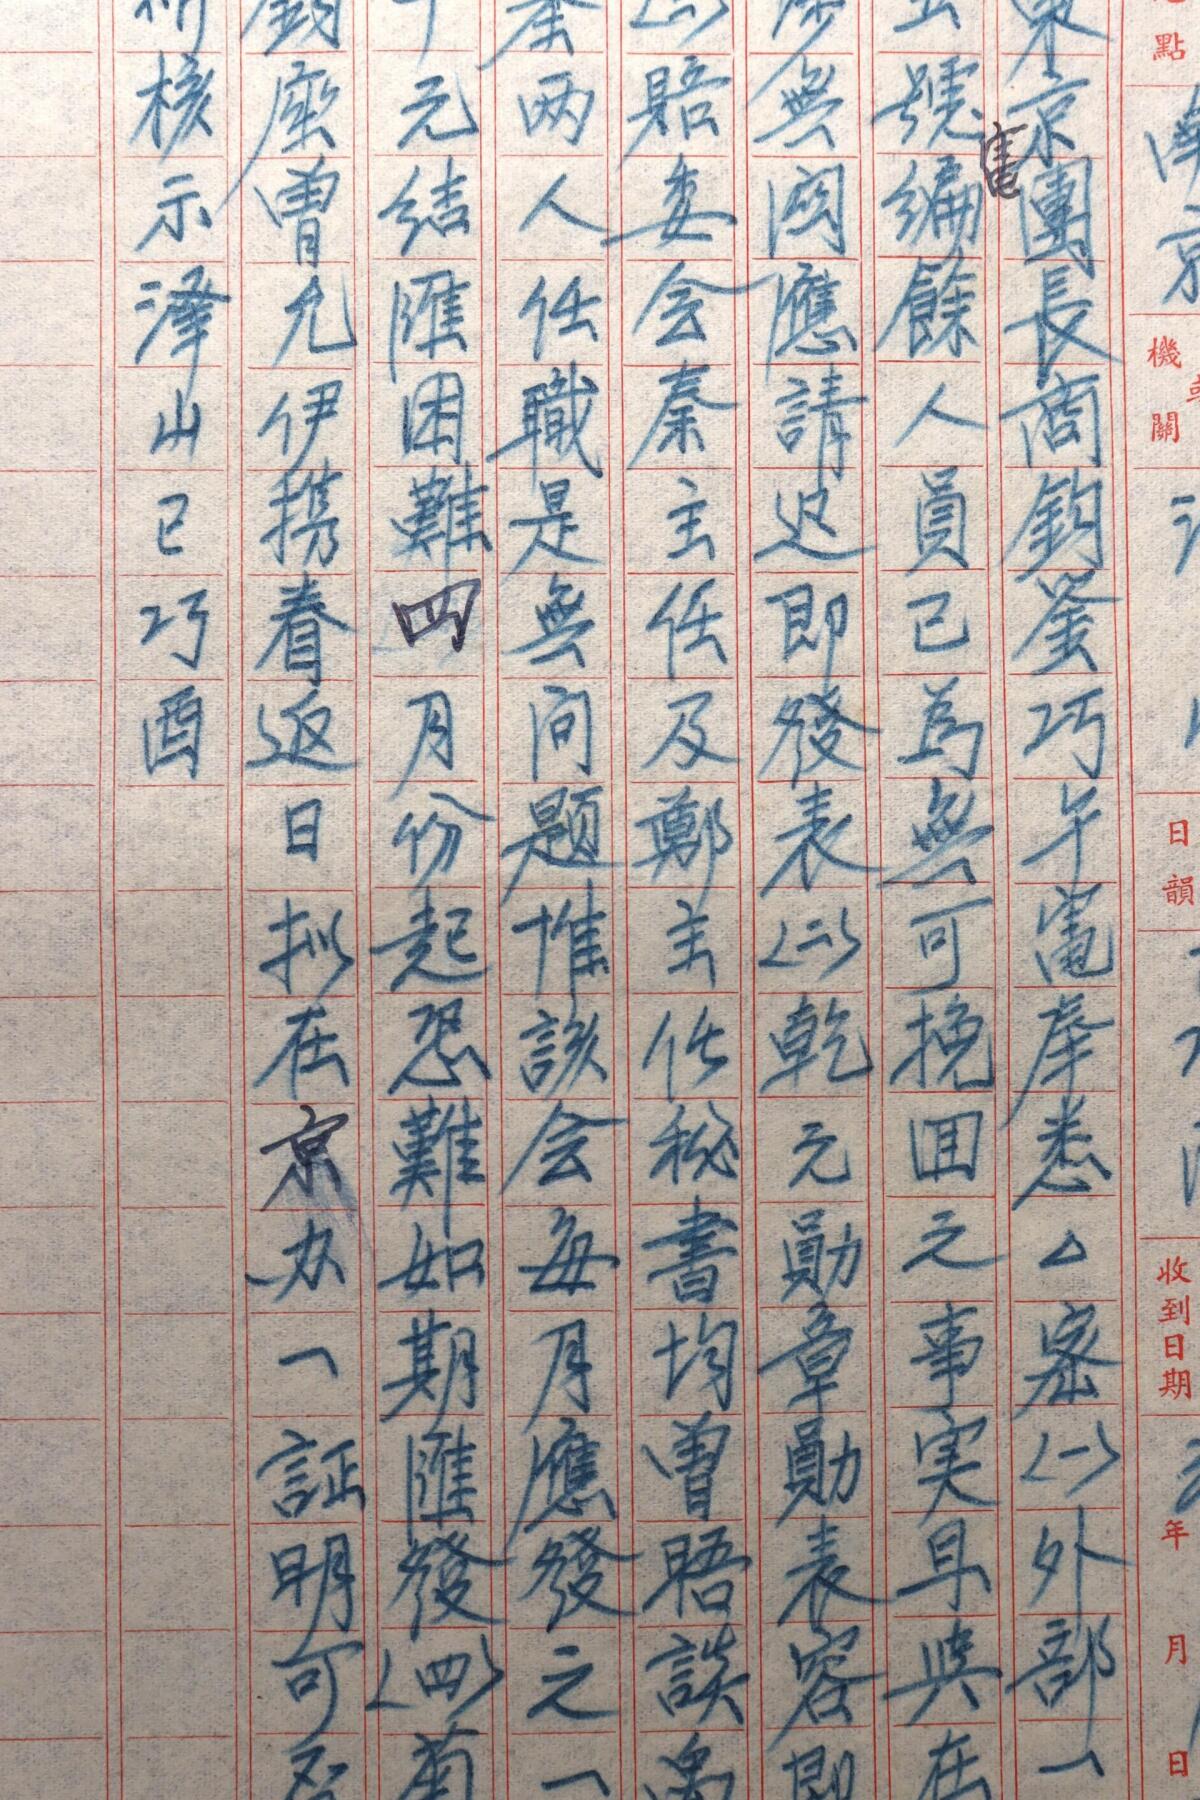 點
南京
機關
日韻
收到日期
年月日
東京團長商鈞鑒巧午電奉悉△密㈠外部一
電
號編餘人員已為無可挽回之事実且與在
無関應請迟即發表㈡乾元勛章勛表容即
㈢賠委会秦主任及鄭主任秘書均曾晤談
奎两人任職是無问题惟該会每月應發之一
千元結匯困難四月份起恐難如期匯發㈣菊
鈞座曾允伊携眷返日拟在京办一証明可否
祈核示澤山已巧酉